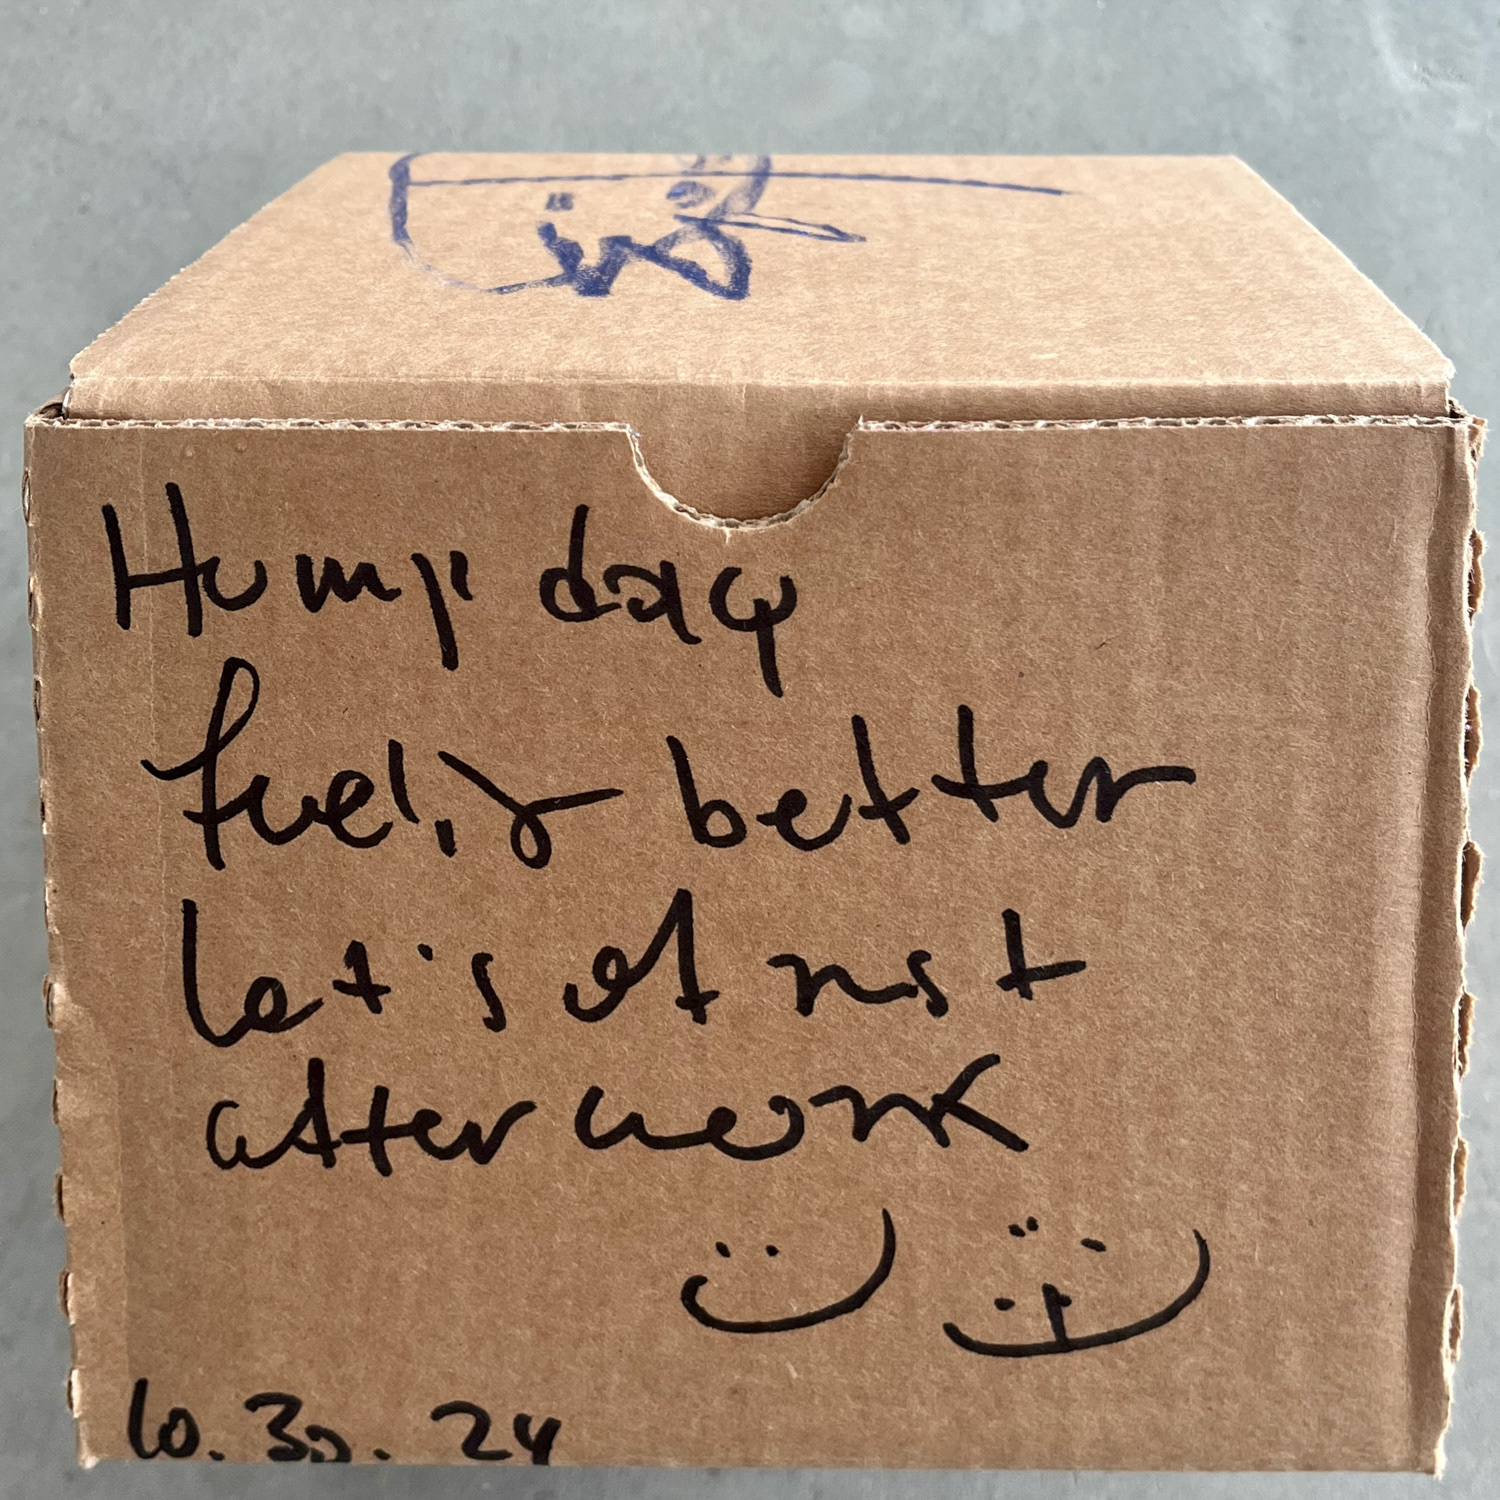 Hump day
better
Let's rest
after work
10.30.24